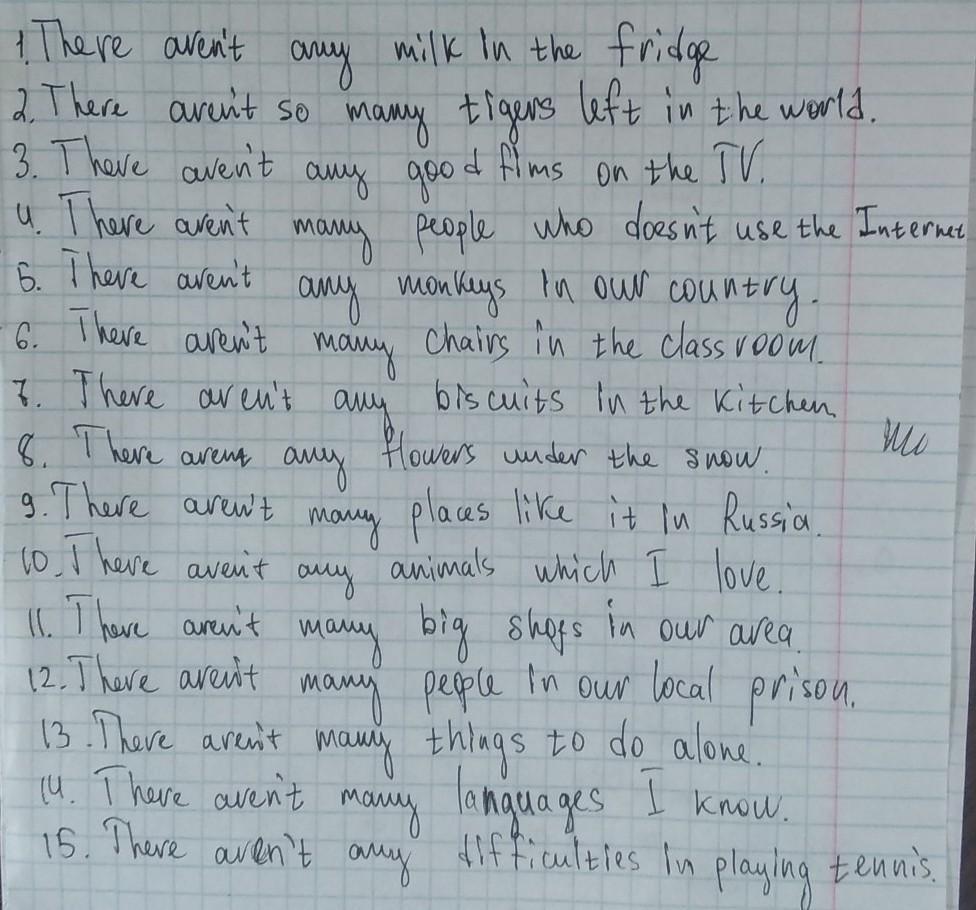 1. There aren't any milk in the fridge
2. There aren't so many tigers left in the world.
3. There aren't any good films on the TV.
4. There aren't many people who doesn't use the Internet
5. There aren't any monkeys in our country.
6. There aren't many chairs in the classroom.
7. There aren't any biscuits in the kitchen.
8. There arent any flowers under the snow.
9. There aren't many places like it in Russia.
10. There aren't any animals which I love.
11. There aren't many big shops in our area.
12. There aren't many people in our local prison.
13. There aren't many things to do alone.
14. There aren't many languages I know.
15. There aren't any difficulties in playing tennis.